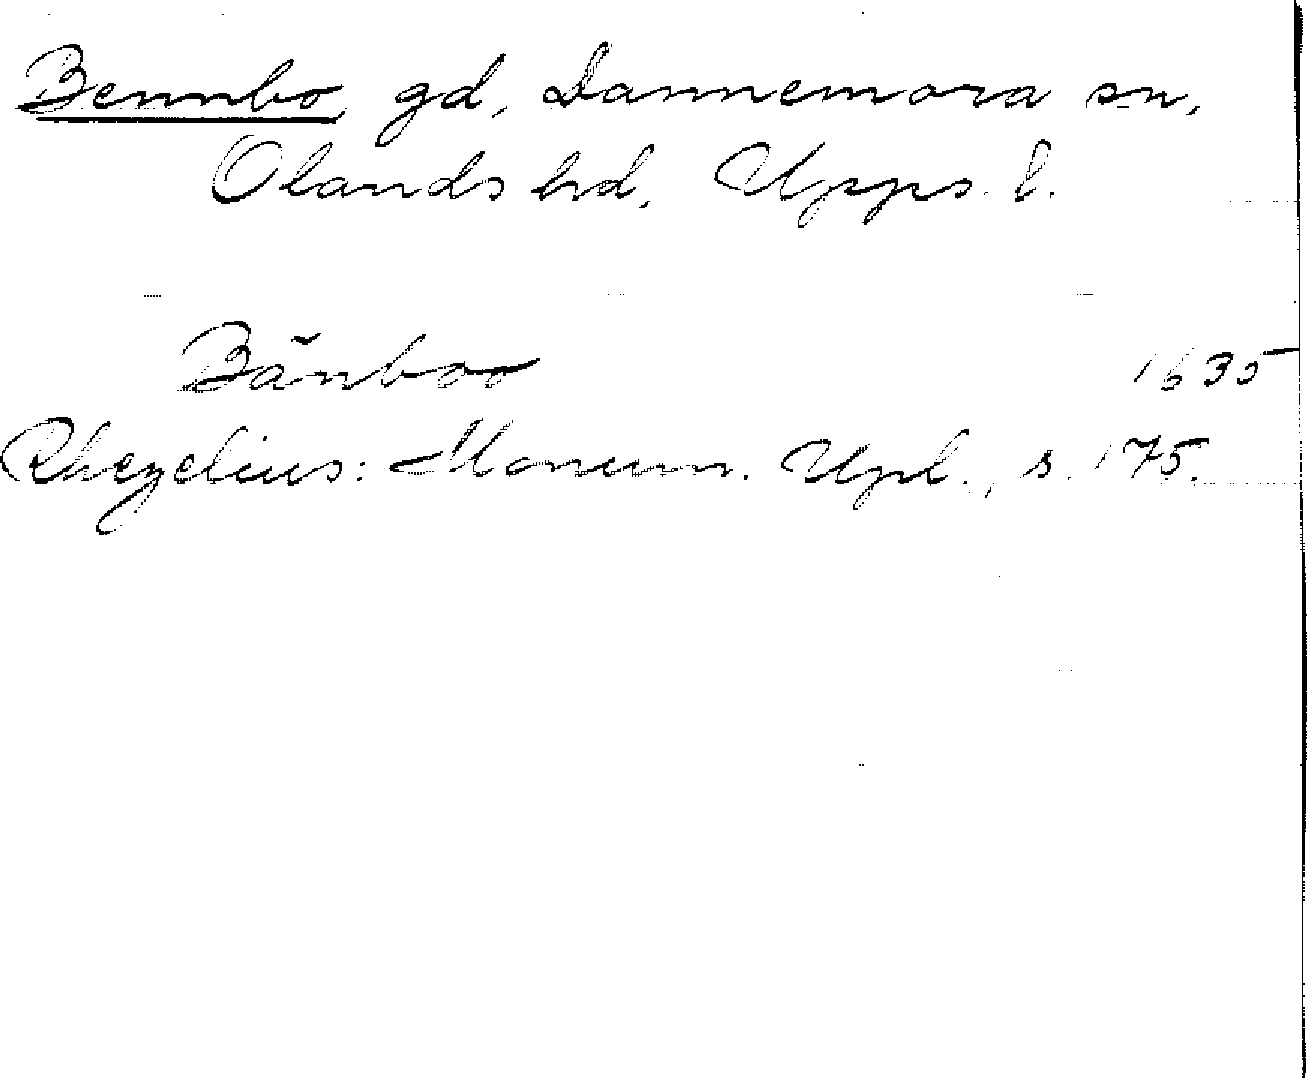 Bennbo gd, Dannemora sn,
Olands hd, Upps. l.
Bänboo 1635
Rhezelius: Monum. Upl., s. 175.